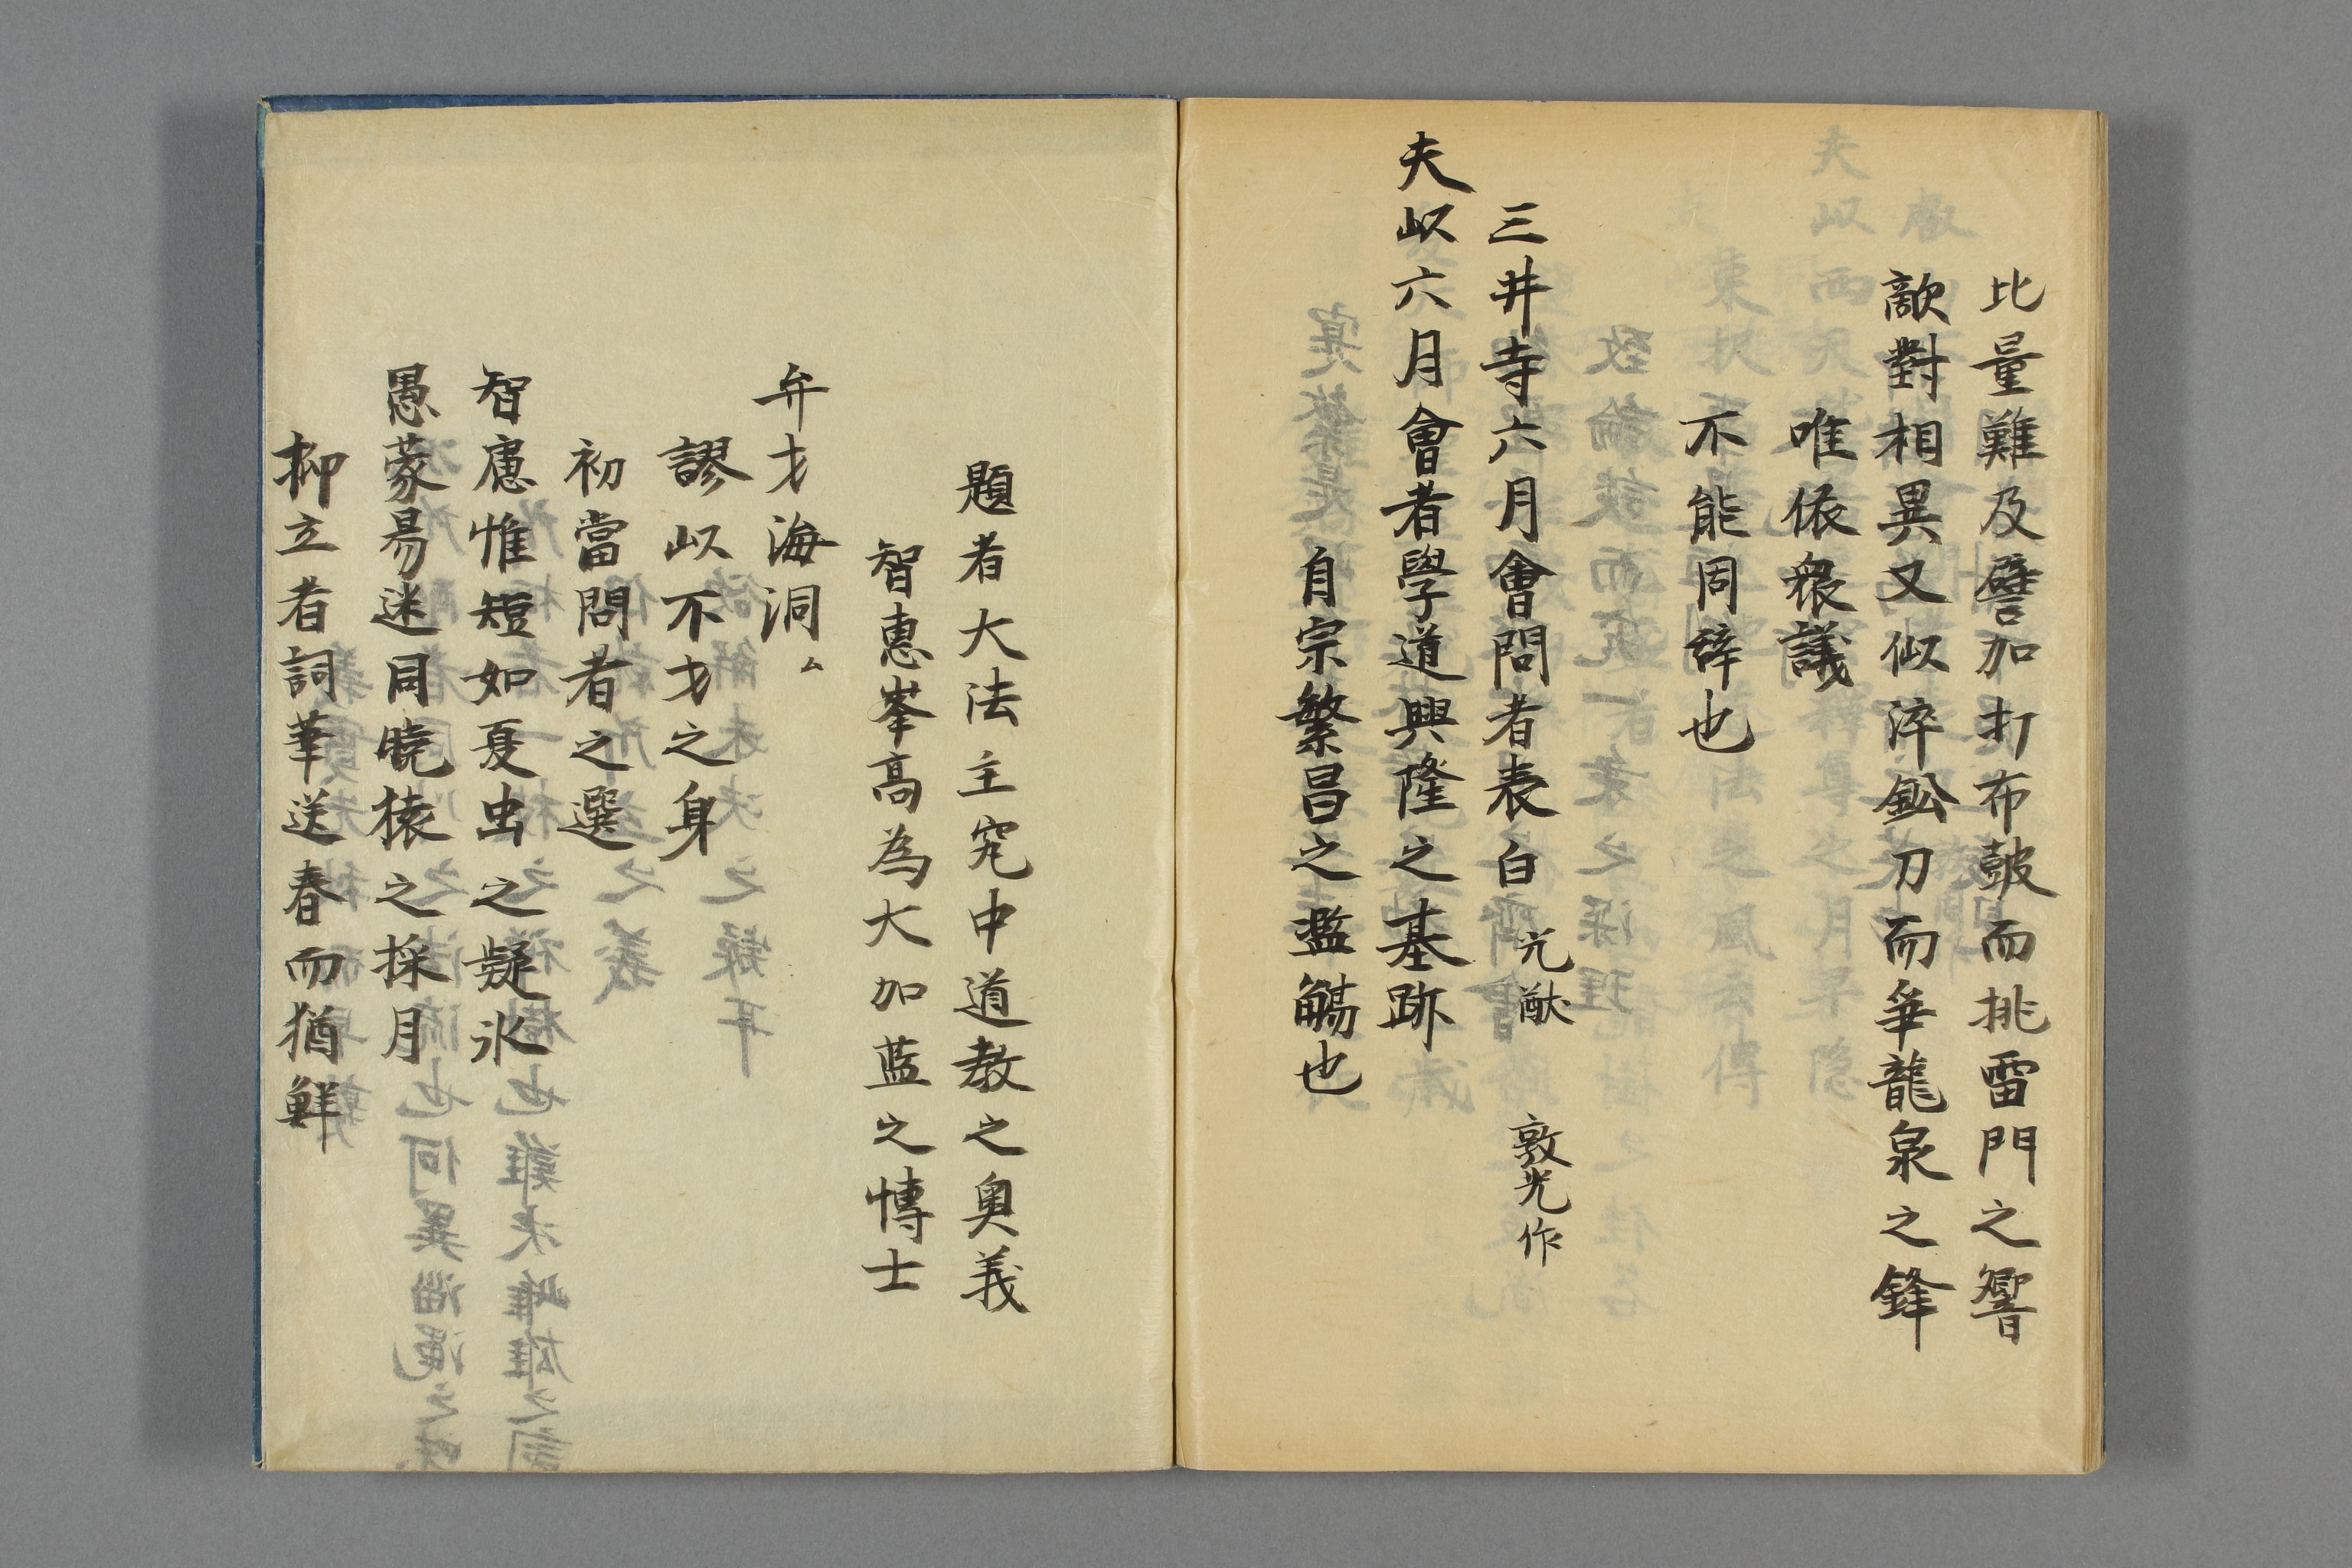 比量難及譬加打布皷而挑雷門之響
敵對相異又似淬鈆刀而爭龍泉之鋒
唯依衆議
不能同辞也
三井寺六月會問者表白 元猷 敦光作
夫以六月會者學道興隆之基跡
自宗繁昌之濫觴也
題者大法主究中道教之奥義
智惠峯高為大加藍之博士
弁才海洞ム
謬以不才之身
初當問者之選
智慮惟短如夏虫之疑氷
愚蒙易迷同曉猿之採月
抑立者詞華送春而猶鮮